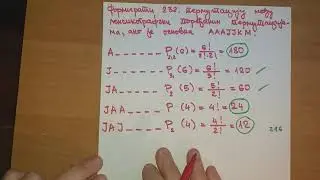 Формирати 232. пермутацију међу
лексикографски поређаним пермутација-
ма, ако је основна AAAJJKM.
A _ _ _ _ _ _ P (6) = 6!/3!·2! = 180
J _ _ _ _ _ _ P (6) = 6!/3! = 120 ✓
JA _ _ _ _ _ P₂ (5) = 5!/2! = 60 ✓
JAA _ _ _ _ P (4) = 4! = 24
JAJ _ _ _ _ P₂ (4) = 4!/2! = 12
216